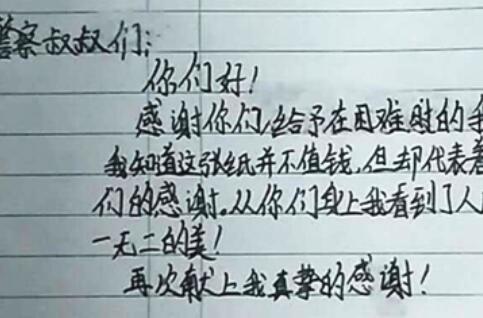 警察叔叔们：
你们好！
感谢你们给予在困难时的我
我知道这张纸并不值钱，但却代表着
们的感谢。从你们身上我看到了人
一无二的美！
再次献上我真挚的感谢！